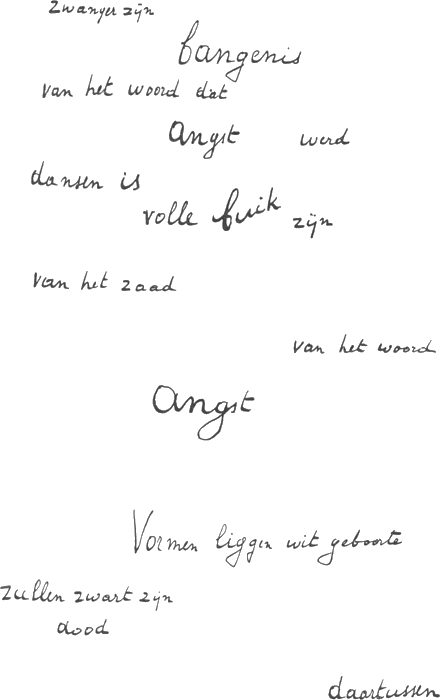 zwanger zijn
bangenis
van het woord dat
angst werd
dansen is
volle buik zijn
van het zaad
van het woord
angst
Vormen liggen wit geboorte
zullen zwart zijn
dood
daartussen